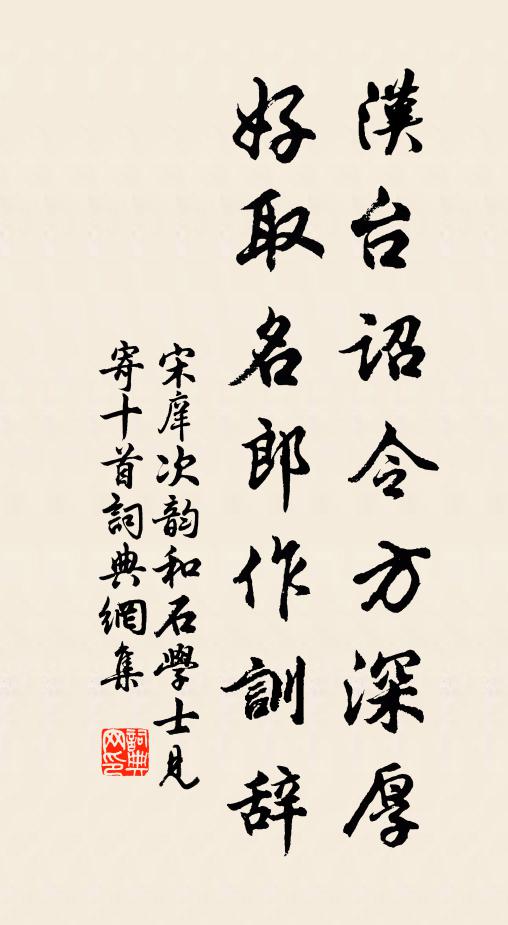 漢台詔令方深厚
好取名郎作訓辞
宋庠次韵和石學士見
寄十首詞典網集
詞典网印